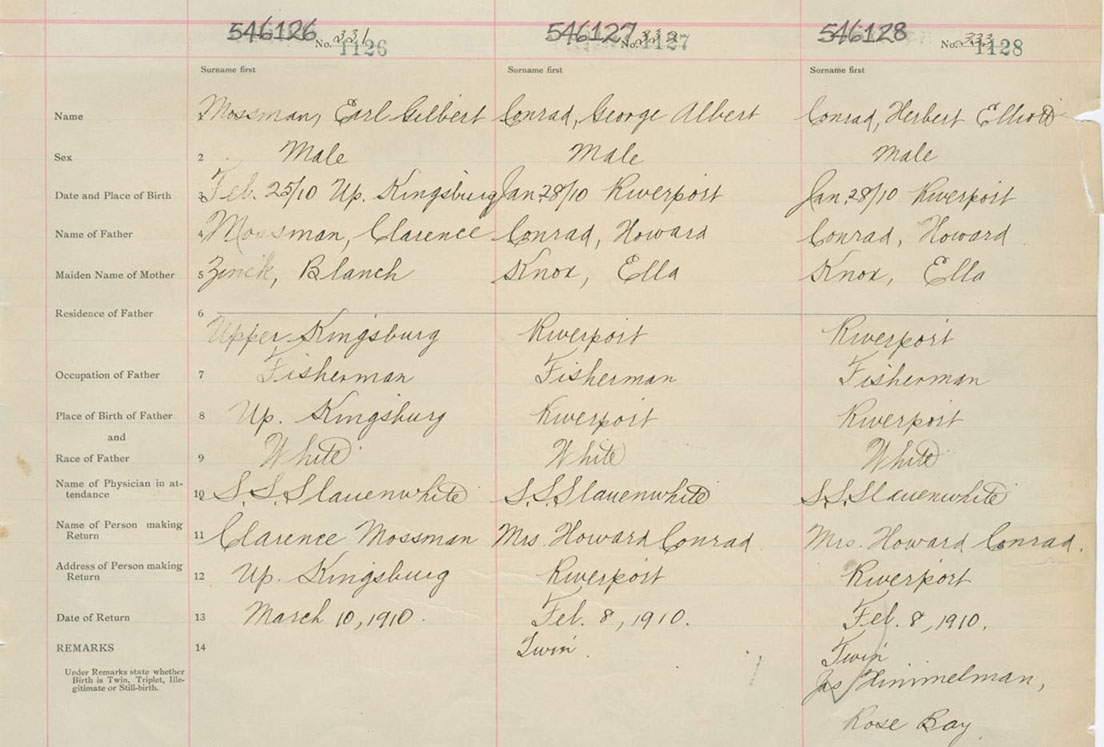 546126 No. 331 1126 546127 No. 332 1127 546128 No. 333 1128
Surname first Surname first Surname first
Name 1 Mossman, Earl Gilbert Conrad, George Albert Conrad, Herbert Elliott
Sex 2 Male Male Male
Date and Place of Birth 3 Feb. 25/10 Up. Kingsburg Jan. 28/10 Riverport Jan. 28/10 Riverport
Name of Father 4 Mossman, Clarence Conrad, Howard Conrad, Howard
Maiden Name of Mother 5 Zinck, Blanch Knox, Ella Knox, Ella
Residence of Father 6
Upper Kingsburg Riverport Riverport
Occupation of Father 7 Fisherman Fisherman Fisherman
Place of Birth of Father 8 Up. Kingsburg Riverport Riverport
and
Race of Father 9 White White White
Name of Physician in at-
tendance 10 S.S. Slauenwhite S.S. Slauenwhite S.S. Slauenwhite
Name of Person making
Return 11 Clarence Mossman Mrs. Howard Conrad Mrs. Howard Conrad.
Address of Person making
Return 12 Up. Kingsburg Riverport Riverport
Date of Return 13 March 10, 1910. Feb. 8, 1910. Feb. 8, 1910.
REMARKS 14 Twin Twin
Under Remarks state whether
Birth is Twin, Triplet, Ille-
gitimate or Still-birth.
Jas Himmelman,
Rose Bay.